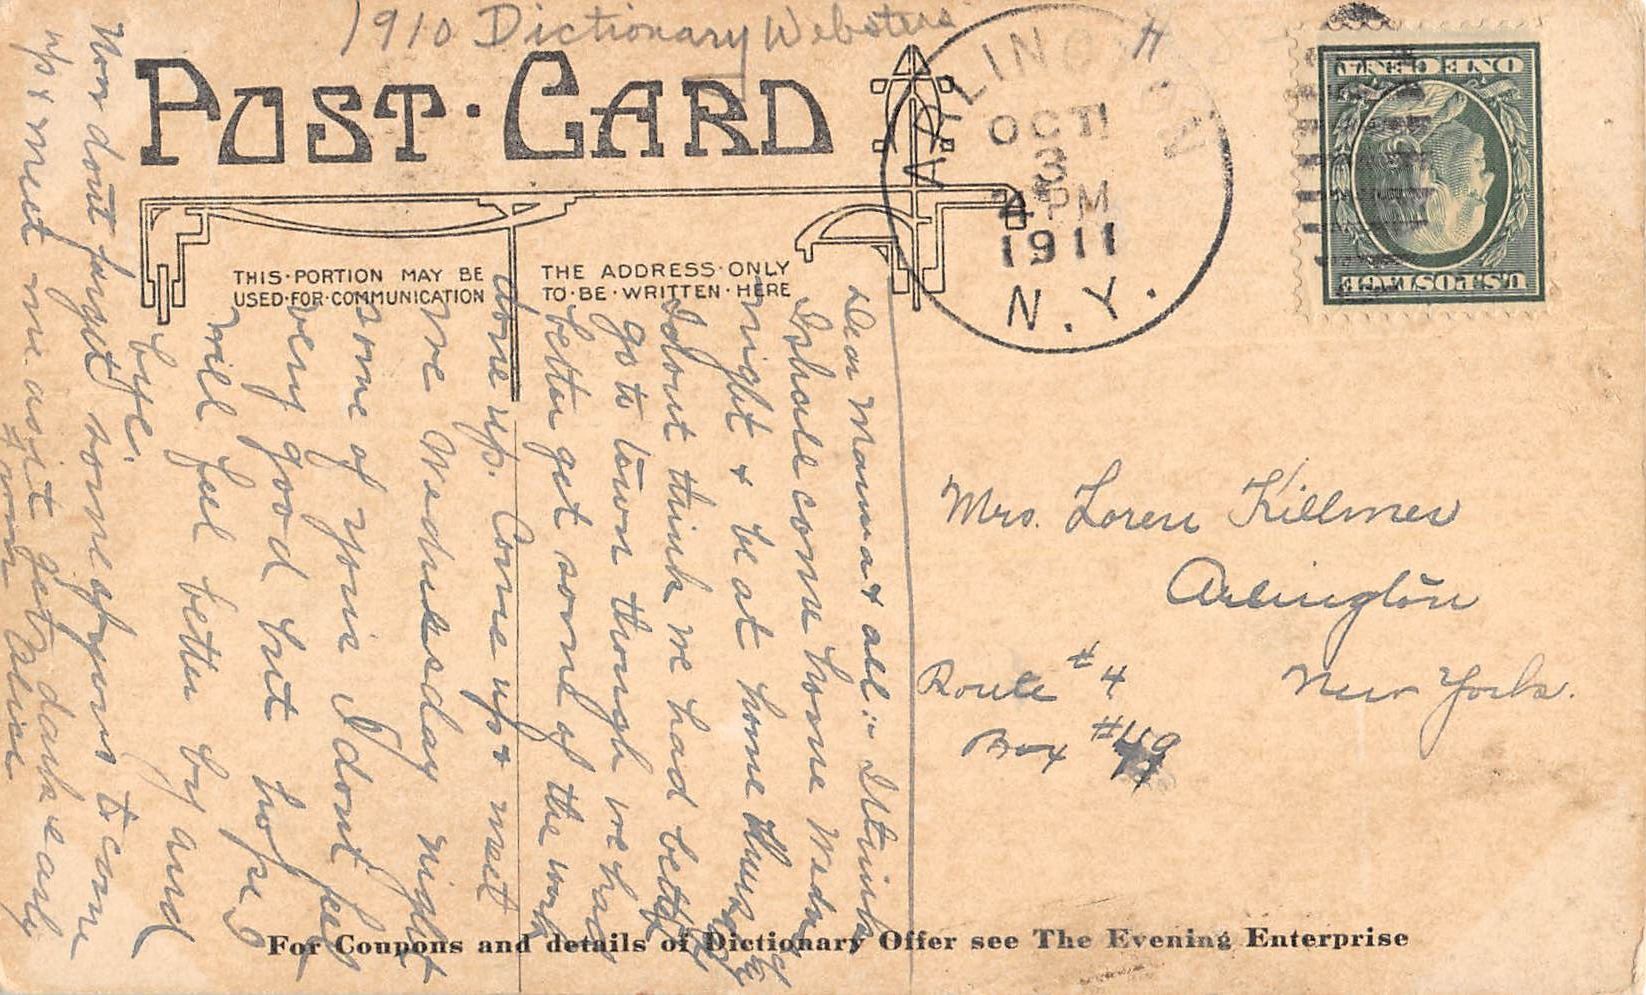 1910 Dictionary Websters
POST·CARD
ARLINGTON
OCT
3
4 PM
1911
N.Y.
ONE CENT
U.S. POSTAGE
THIS·PORTION MAY BE
USED·FOR·COMMUNICATION
THE ADDRESS·ONLY
TO·BE·WRITTEN·HERE
Dear Mama & all:- I think
I shall come home Wedns
night & be at home Thursday
I dont think we had better
go to town though we had
better get some of the work
done up. Come up & meet
me Wednesday night
some of your I dont feel
very good but hope I
will feel better by and
bye.
Now dont forget some of yours to come
up & meet me as it gets dark early
from Alice
Mrs. Loren Killmer
Arlington
Route #4
New York.
Box #
For Coupons and details of Dictionary Offer see The Evening Enterprise